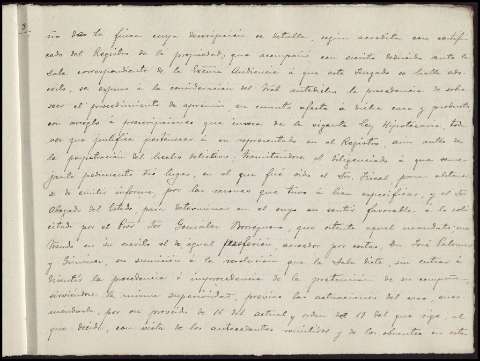 3
ño de la finca cuya descripcion se detalla, segun acredita con certifi
cado del Registro de la propiedad, que acompañó con escrito deducido ante la
Sala correspondiente de la Excma Audiencia á que este Juzgado se halla ads
crito, se expuso á la consideracion del Tribunal la procedencia de sobre
seer el procedimiento de apremio, en cuanto afecta á dicha casa y producto
con arreglo á prescripciones que invoca de la vigente Ley Hipotecaria, toda
vez que justifica pertenecer á su representado en el Registro, aun antes de
la perpetracion del hecho delictivo; tramitandose el diligenciado á que seme
jante pedimento dió lugar, en el que fué oido el Sr. Fiscal
se de emitir informe, por las razones que tuvo á bien especificar, y el Sr
Abogado del Estado para determinar en el suyo en sentir favorable á lo soli
citado por el Pror Sor Gonzalez que ostenta aquel mandato;
en su escrito el de igual profesión, acreedor por costas, Don José Palomo
y Jimenez, su sumisión á la resolucion que la Sala dicte, sin entrar á
discutir la procedencia ó improcedencia de la pretension de su compañero,
sirviendose la misma superioridad, previas las actuaciones del caso,
mendado, por su proveido de 16 del actual y orden del 18 del que rige, el
que decide, con vista de los antecedentes remitidos y de los obrantes en este